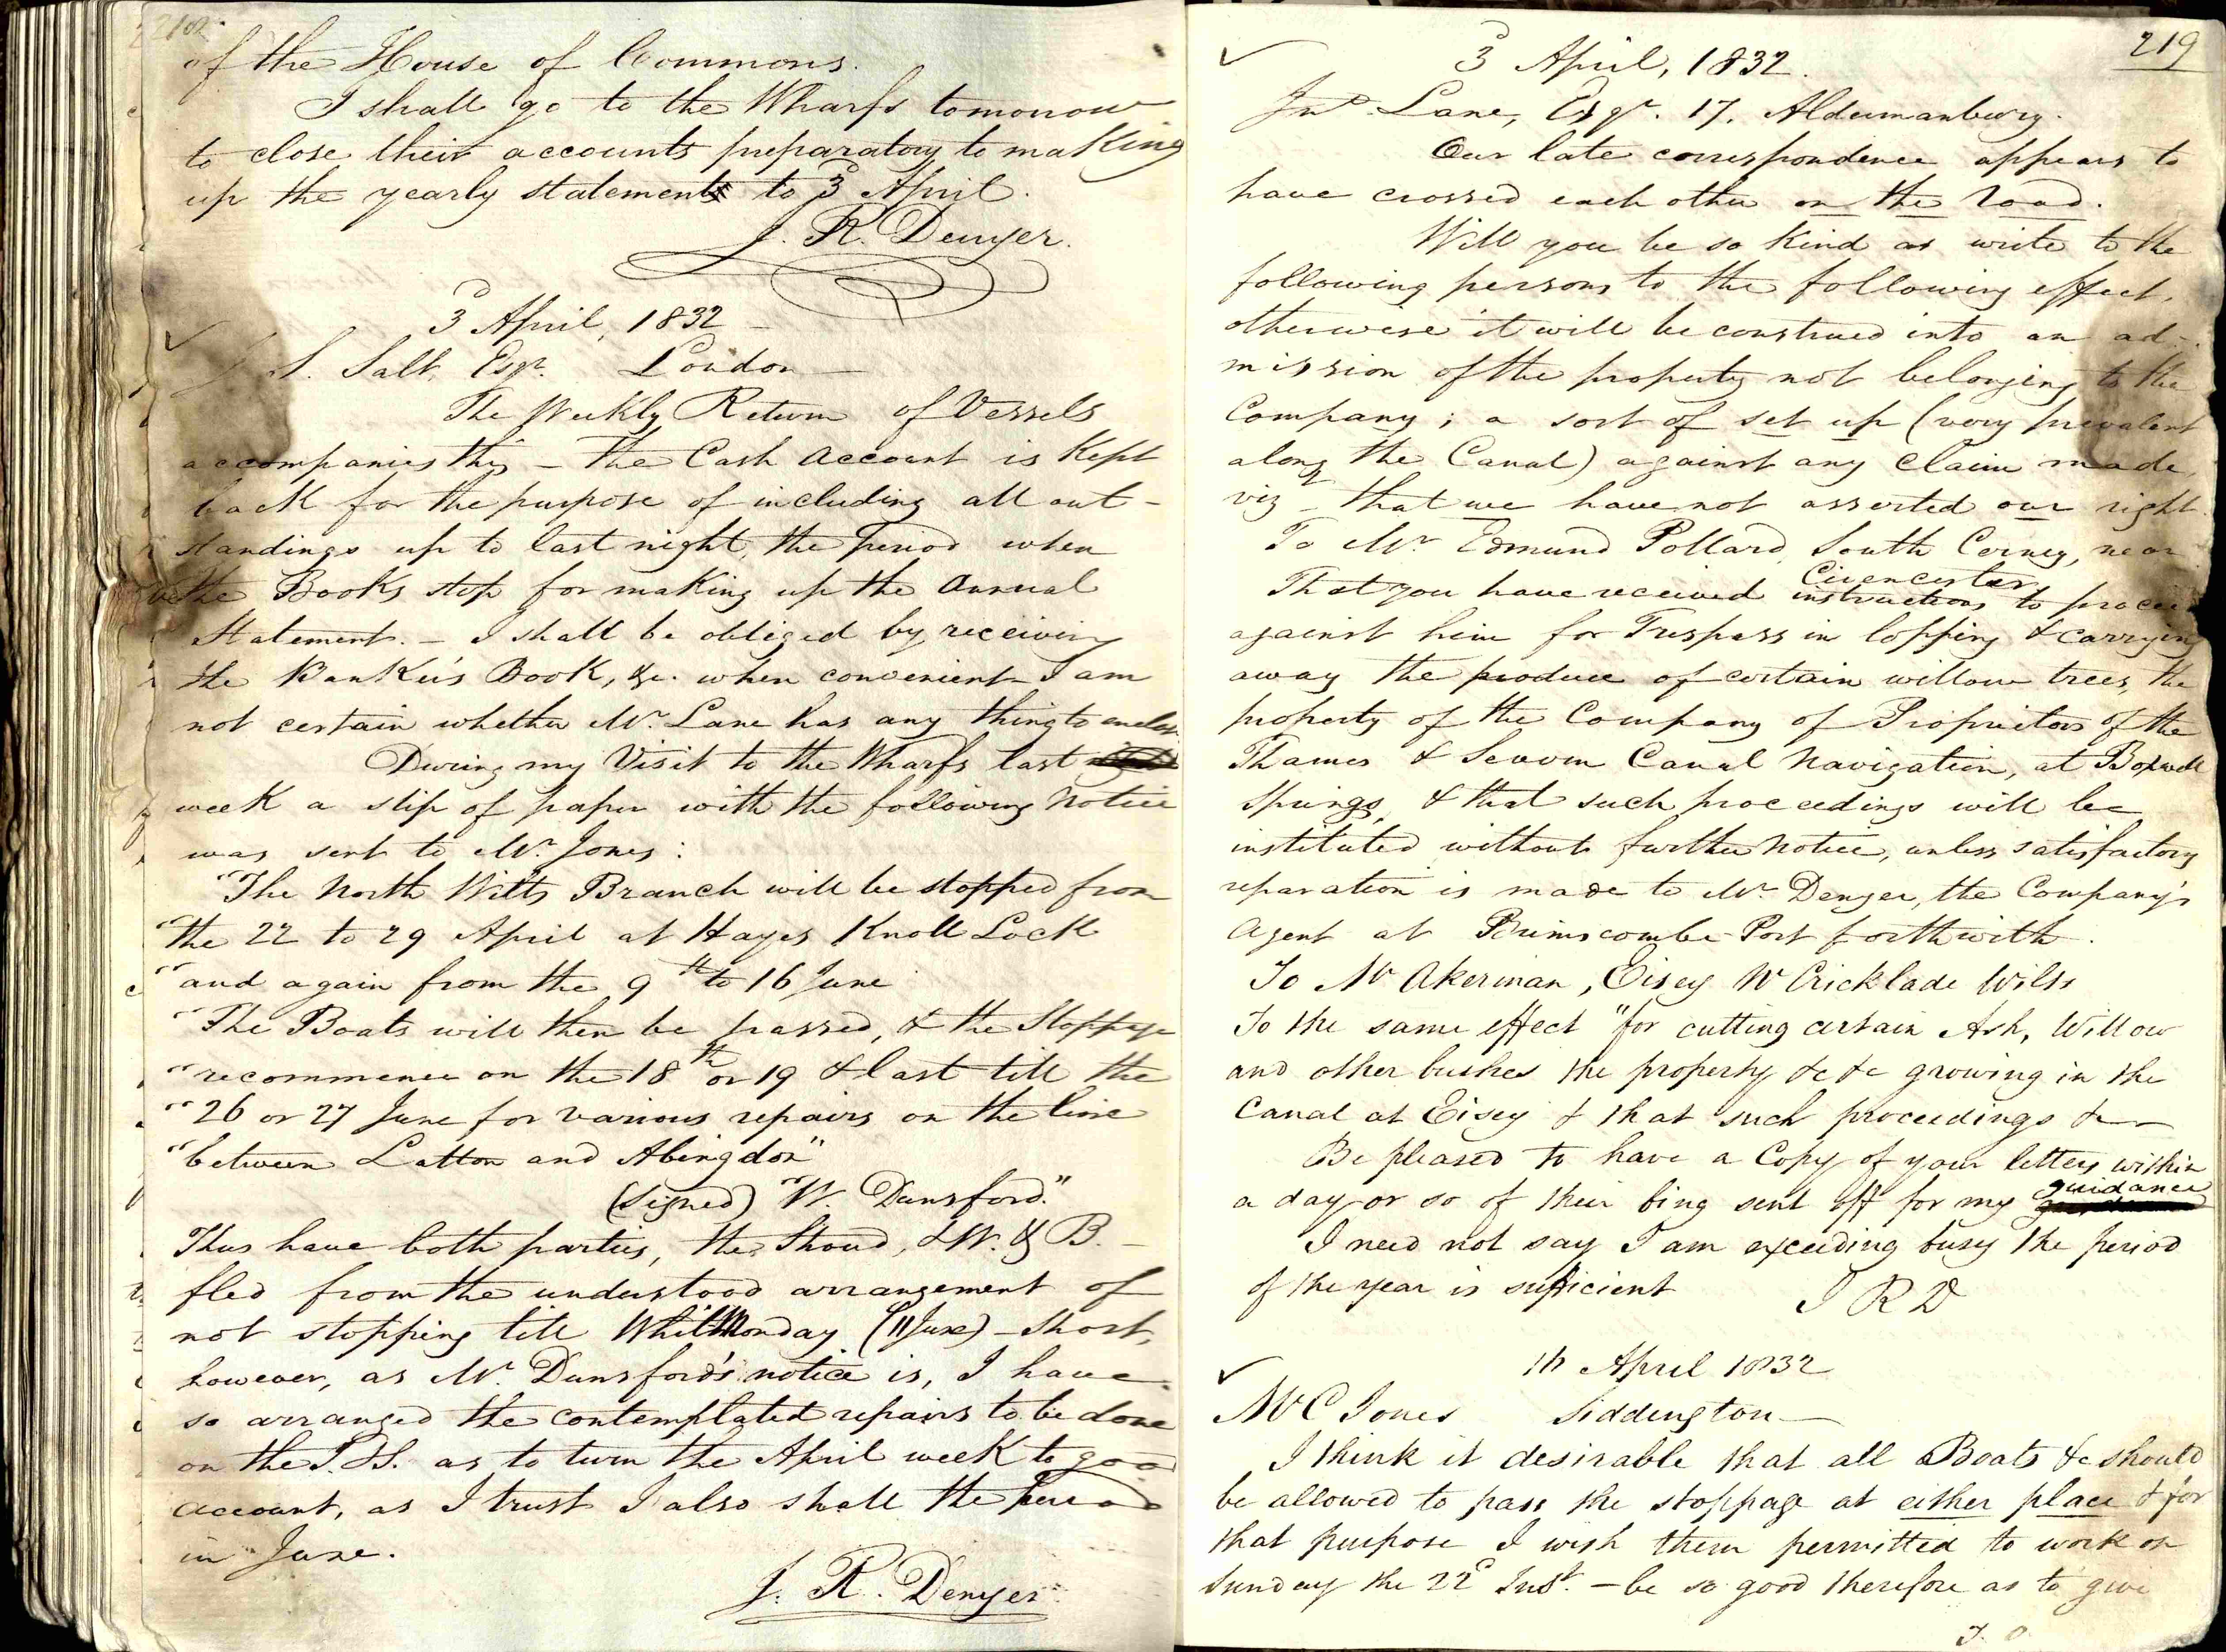 218
of the House of Commons.
I shall go to the Wharfs tomorrow
to close their accounts preparatory to making
up the yearly statement to 3d April.
J. R. Denyer.
3d April, 1832 —
S. Salt, Esqr. London —
The Weekly Return of Vessels
accompanies this – the Cash Account is Kept
back for the purpose of including all out-
standings up to last night, the period when
the Books stop for making up the Annual
Statement. – I shall be obliged by receiving
the Banker's Book, &c. when convenient – I am
not certain whether Mr. Lane has any thing to enclose.
During my Visit to the Wharfs last
week a slip of paper with the following Notice
was sent to Mr. Jones:
"The North Wilts Branch will be stopped from
"the 22 to 29 April at Hayes Knoll Lock
"and again from the 9th to 16 June
"The Boats will then be passed, & the Stoppage
"recommence on the 18th or 19 & last till the
"26 or 27 June for various repairs on the line
"between Latton and Abingdon"
(signed) "W. Dunsford."
Thus have both parties, the Stroud, & W. & B. –
fled from the understood arrangement of
not stopping till WhitMonday (11 June) – Short,
however, as Mr. Dunsford's notice is, I have
so arranged the contemplated repairs to be done
on the T. & S. as to turn the April week to good
account, as I trust I also shall the period
in June.
J. R. Denyer
219
3d April, 1832.
Jno. Lane, Esqr. 17, Aldermanbury.
Our late correspondence appears to
have crossed each other on the road.
Will you be so Kind as write to the
following persons to the following effect,
otherwise it will be construed into an ad-
mission of the property not belonging to the
Company; a sort of set up (very prevalent
along the Canal) against any claim made,
viz – that we have not asserted our right.
To Mr Edmund Pollard, South Cerney, near
Cirencester,
That you have received instructions to proceed
against him for Trespass in lopping & carrying
away the produce of certain willow trees, the
property of the Company of Proprietors of the
Thames & Severn Canal Navigation, at Boxwell
Springs, & that such proceedings will be
instituted without further notice, unless satisfactory
reparation is made to Mr Denyer, the Company's
Agent at Brimscombe Port forthwith.
To Mr Akerman, Eisey Nr Cricklade Wilts
To the same effect "for cutting certain Ash, Willow
and other bushes the property &c &c growing in the
Canal at Eisey & that such proceedings &c —
Be pleased to have a Copy of your letters within
a day or so of their bing sent off for my guidance
I need not say I am exceeding busy the period
of the year is sufficient J R D
April 1832
Mr C Jones Siddington —
I think it desirable that all Boats &c should
be allowed to pass the stoppage at either place & for
that purpose I wish them permitted to work on
Sunday the 22d Inst. – be so good therefore as to give
T. O